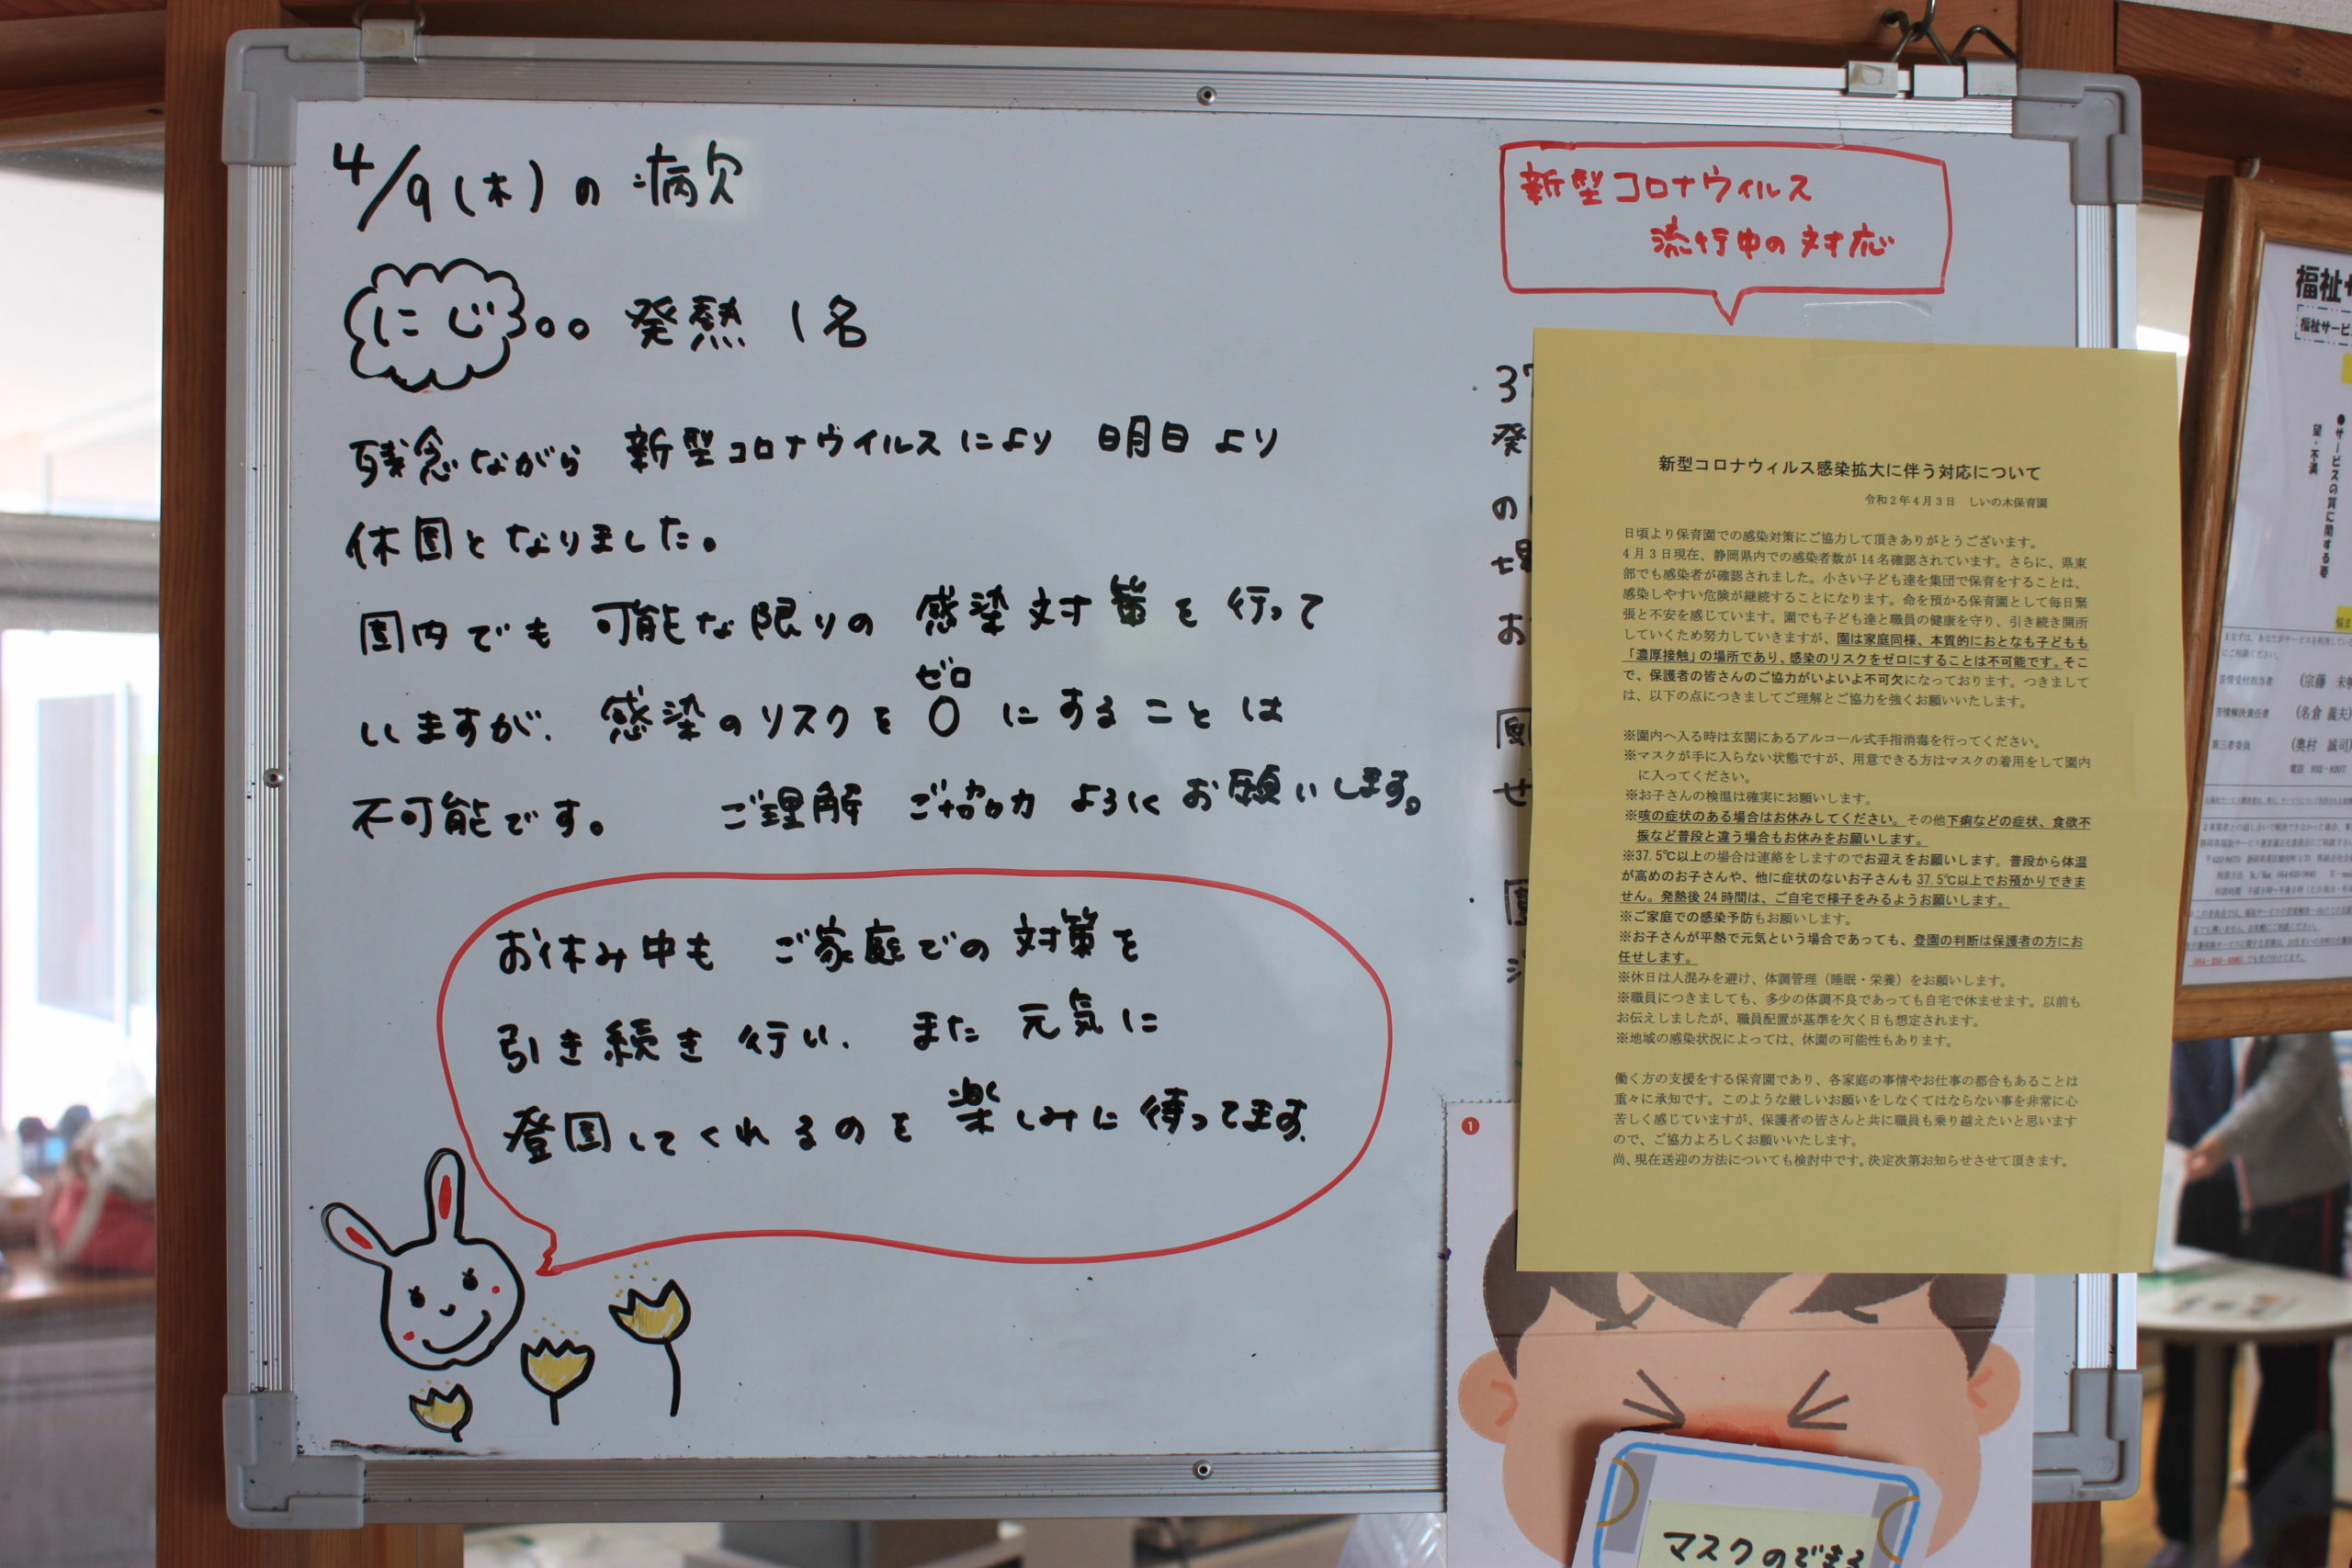 4/9(木)の病欠
にじ。。発熱 1名
残念ながら 新型コロナウイルスにより 明日より
休園となりました。
園内でも 可能な限りの 感染対策を行って
いますが、感染のリスクを 0 にすることは
ゼロ
不可能です。 ご理解 ご協力 よろしくお願いします。
お休み中も ご家庭での対策を
引き続き行い、また 元気に
登園してくれるのを楽しみに待ってます。
新型コロナウィルス
流行中の対応
新型コロナウィルス感染拡大に伴う対応について
令和2年4月3日 しいの木保育園
日頃より保育園での感染対策にご協力して頂きありがとうございます。
4月3日現在、静岡県内での感染者数が14名確認されています。さらに、県東
部でも感染者が確認されました。小さい子ども達を集団で保育をすることは、
感染しやすい危険が継続することになります。命を預かる保育園として毎日緊
張と不安を感じています。園でも子ども達と職員の健康を守り、引き続き開所
していくため努力していきますが、園は家庭同様、本質的におとなも子どもも
「濃厚接触」の場所であり、感染のリスクをゼロにすることは不可能です。そこ
で、保護者の皆さんのご協力がいよいよ不可欠になっております。つきまして
は、以下の点につきましてご理解とご協力を強くお願いいたします。
※園内へ入る時は玄関にあるアルコール式手指消毒を行ってください。
※マスクが手に入らない状態ですが、用意できる方はマスクの着用をして園内
に入ってください。
※お子さんの検温は確実にお願いします。
※咳の症状のある場合はお休みしてください。その他下痢などの症状、食欲不
振など普段と違う場合もお休みをお願いします。
※37.5℃以上の場合は連絡をしますのでお迎えをお願いします。普段から体温
が高めのお子さんや、他に症状のないお子さんも37.5℃以上でお預かりできま
せん。発熱後24時間は、ご自宅で様子をみるようお願いします。
※ご家庭での感染予防もお願いします。
※お子さんが平熱で元気という場合であっても、登園の判断は保護者の方にお
任せします。
※休日は人混みを避け、体調管理(睡眠・栄養)をお願いします。
※職員につきましても、多少の体調不良であっても自宅で休ませます。以前も
お伝えしましたが、職員配置が基準を欠く日も想定されます。
※地域の感染状況によっては、休園の可能性もあります。
働く方の支援をする保育園であり、各家庭の事情やお仕事の都合もあることは
重々に承知です。このような厳しいお願いをしなくてはならない事を非常に心
苦しく感じていますが、保護者の皆さんと共に職員も乗り越えたいと思います
ので、ご協力よろしくお願いいたします。
尚、現在送迎の方法についても検討中です。決定次第お知らせさせて頂きます。
1
マスクのできる
福祉サ
福祉サービ
●サービスの質に関する要
望・不満
苦情受付担当者
苦情解決責任者 (名倉 義夫)
第三者委員 (奥村 誠司)